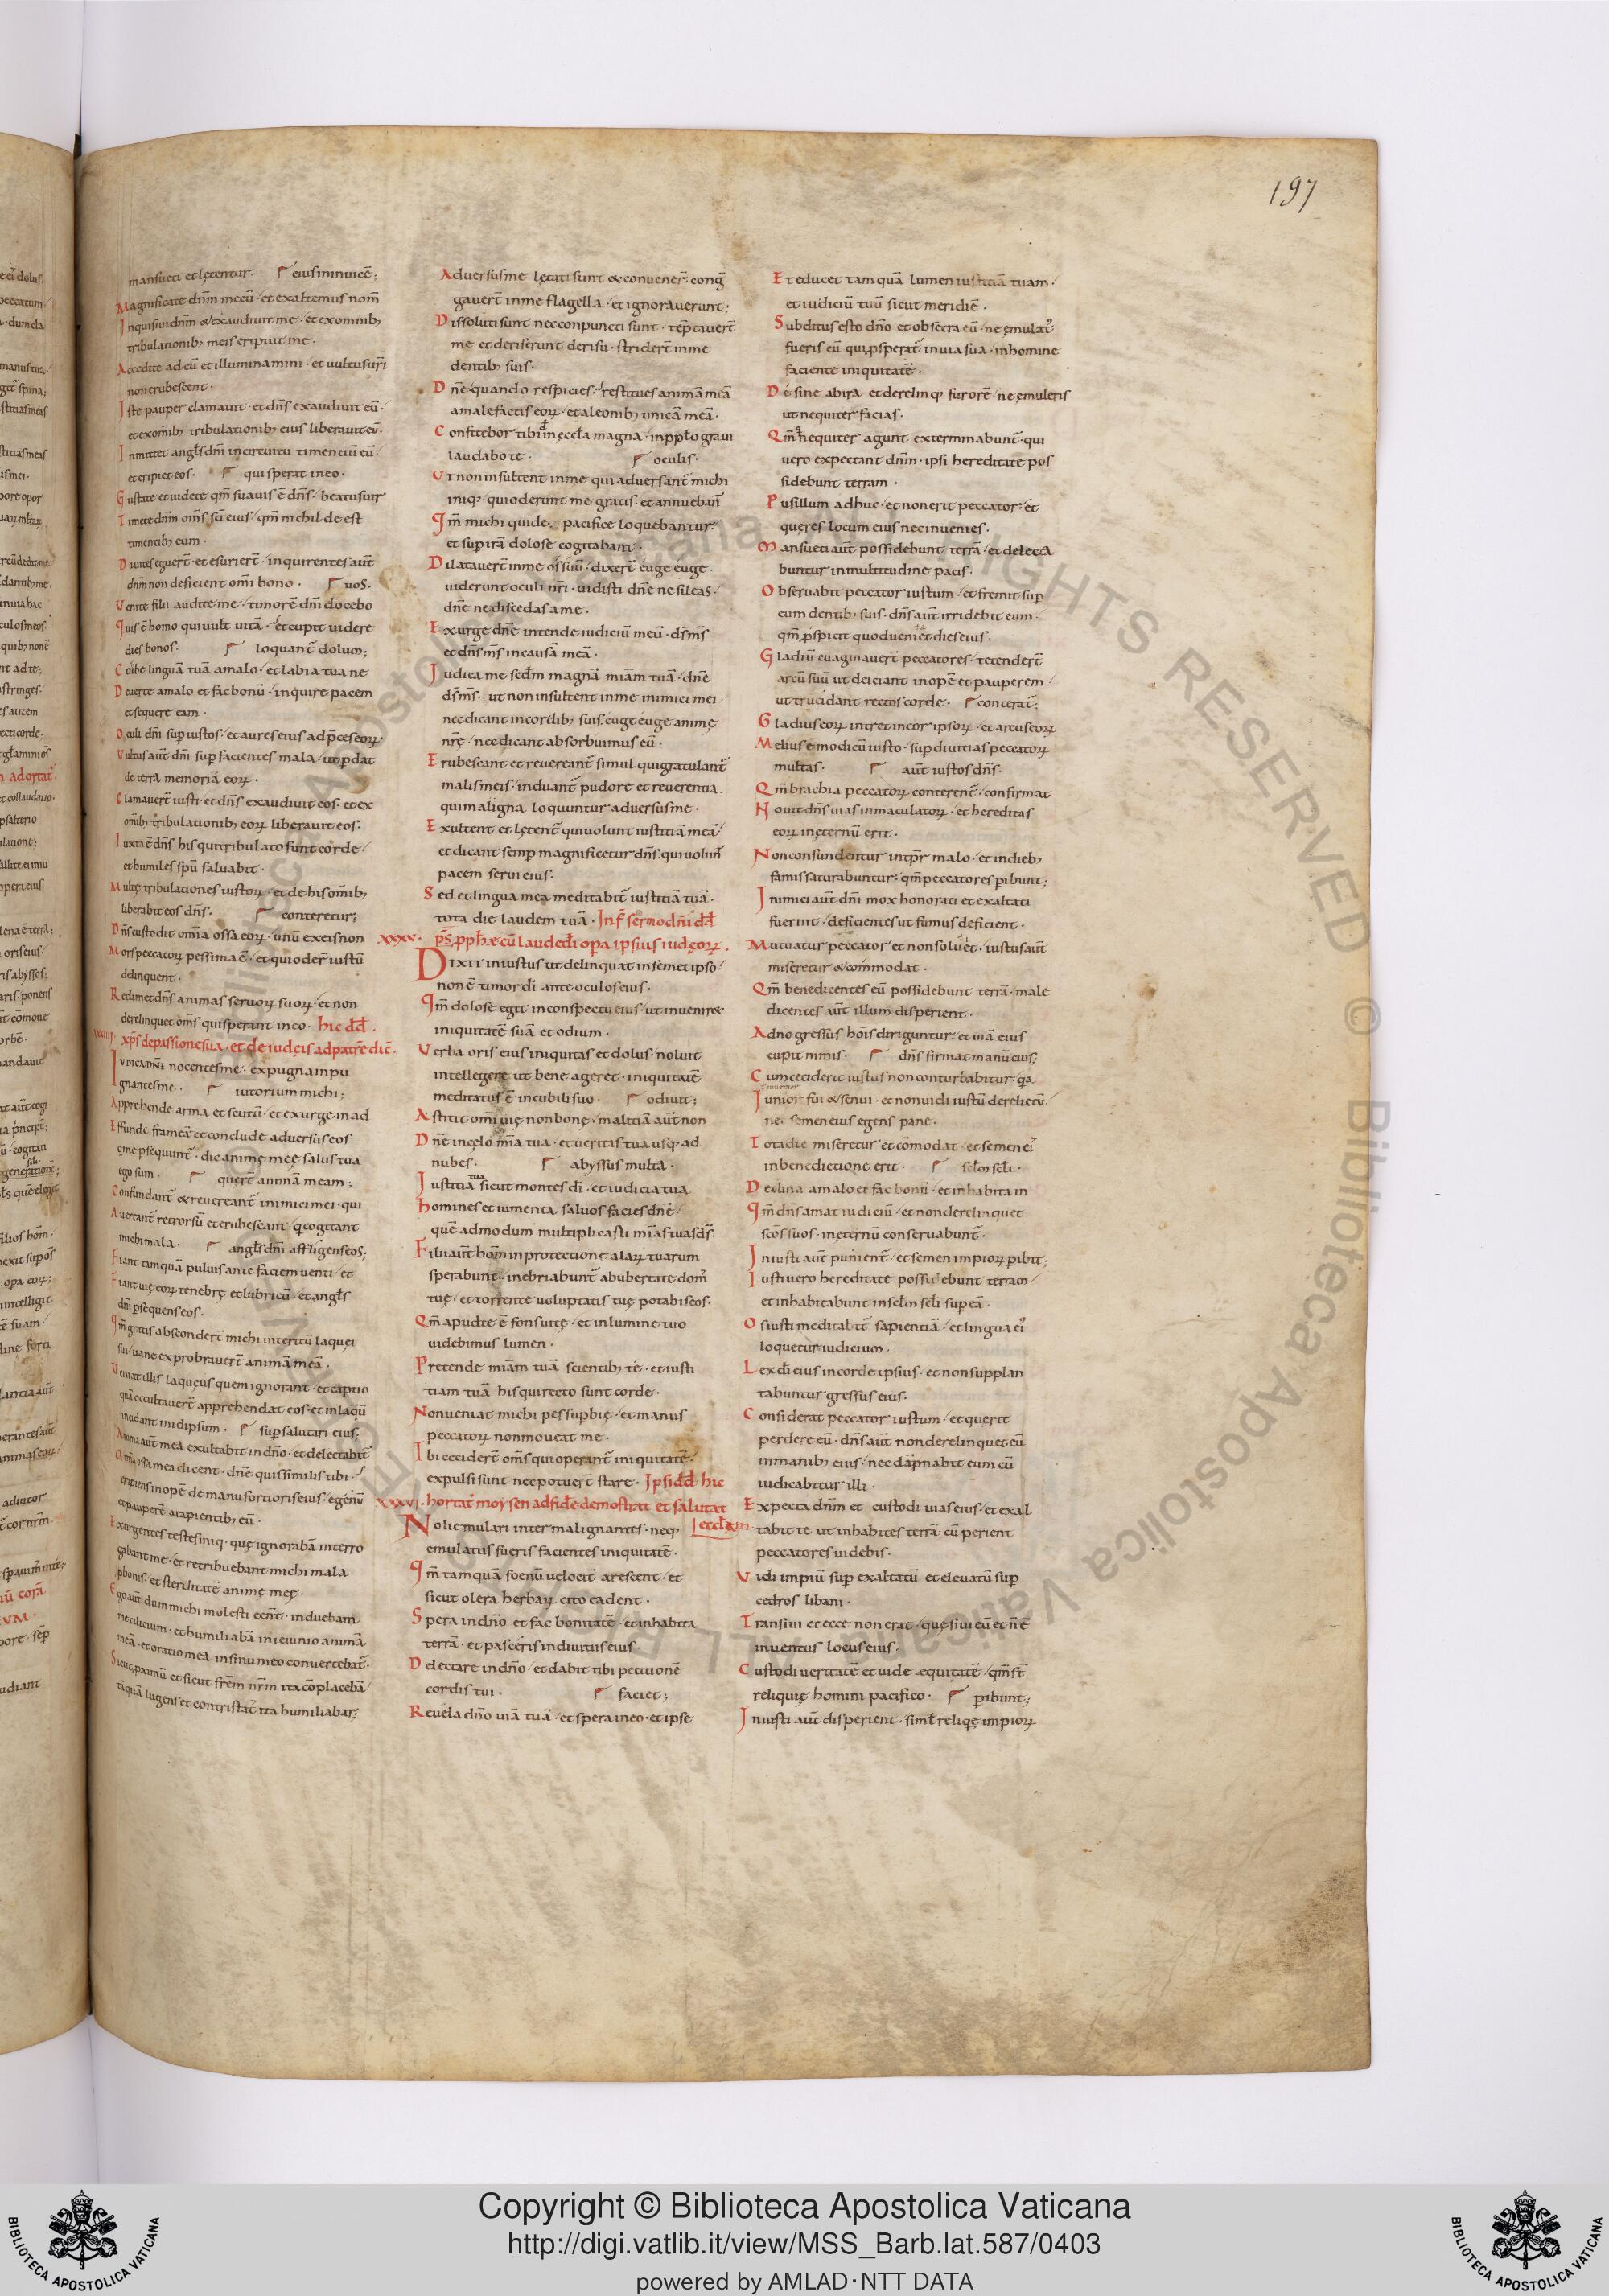 197
mansueti et lętentur: eius ininuicē;
Magnificate dnm̄ mecū · et exaltemus nom̄
Inquisiui dnm̄ & exaudiuit me · et exomnibȝ
tribulationibȝ meis eripuit me ·
Accedite ad eū et illuminamini · et uultus uri
non erubescent ·
Iste pauper clamauit · et dns̄ exaudiuit eū ·
et exomībȝ tribulationibȝ eius liberauit eū ·
Inmittet angls̄ dnī incircuitu timentiū eū ·
et eripiet eos · qui sperat ineo ·
Gustate et uidete qm̄ suauis ē dns̄ · beatus uir
Timete dnm̄ oms̄ sc̄i eius · qm̄ nichil de est
timentibȝ eum ·
Diuites eguert̄ · et esuriert̄ · inquirentes aut̄
dnm̄ non deficient omī bono · uos ·
Venite filii audite me · timorē dnī docebo
Quis ē homo qui uult uitā · et cupit uidere
dies bonos · loquant̄ dolum;
Cohibe linguā tuā amalo · et labia tua ne
Deuerte amalo et fac bonū · inquire pacem
et sequere eam ·
Oculi dnī sup iustos · et aures eius ad p̄ces eorꝝ ·
Vultus aut̄ dnī sup facientes mala · ut pdat
de terra memoriā eorꝝ ·
Clamauert̄ iusti · et dns̄ exaudiuit eos · et ex
omībȝ tribulationibȝ eorꝝ liberauit eos ·
Iuxta ē dns̄ his qui tribulato sunt corde ·
et humiles spū saluabit ·
Multę tribulationes iustorꝝ · et de his omībȝ
liberabit eos dns̄ · conteretur;
Dns̄ custodit omīa ossa eorꝝ · unū ex eis non
Mors peccatorꝝ pessima ē · et qui oder̄ iustū
delinquent ·
Redimet dns̄ animas seruorꝝ suorꝝ · et non
derelinquet oms̄ qui sperant ineo · hic dd̄ ·
xps̄ depassione sua · et de iudęis ad patrē dic̄ ·
IVDICA DNĪ nocentes me · expugna inpu
gnantes me · iutorium michi;
Apprehende arma et scutū · et exurge in ad
Effunde frameā et conclude aduersus eos
qui me psequunt̄ · dic animę meę salus tua
ego sum · quert̄ animā meam;
Confundant̄ & reuereant̄ inimici mei · qui
Auertant̄ retrorsū et erubescant · q̄ cogitant
michi mala · angls̄ dnī affligens eos;
Fiant tamquā puluis ante faciem uenti · et
Fiant uię eorꝝ tenebrę et lubricū · et angls̄
dnī psequens eos ·
Qm̄ gratis absconderт̄ michi interitū laquei
sui · uane exprobrauert̄ animā meā ·
Veniat illis laqueus quem ignorant · et captio
quā occultauert̄ apprehendat eos · et in laqueū
incidant in idipsum · sup salutari eius;
Anima aut̄ mea exultabit in dnō · et delectabit̄
Omīa ossa mea dicent · dnē quis similis tibi ·
eripiens inopē de manu fortioris eius · egenū
et pauperē arapientibȝ eū ·
Exurgentes testes iniq · quę ignorabā interro
gabant me · et retribuebant michi mala
pbonis · et sterilitatē animę meę ·
Ego aut̄ dum michi molesti eēnt · induebam
me cilicium · et humiliabā in ieiunio animā
meā · et oratio mea insinu meo conuertebat̄ ·
Sicut pximū et sicut frēm nr̄m ita cōplacebā ·
tāquā lugens et contristat̄ ita humiliabar;
Aduersus me lętati sunt & conuener̄ · conḡ
gauert̄ in me flagella · et ignorauerunt;
Dissoluti sunt nec conpuncti sunt · tēptauert̄
me et deriserunt derisu · stridert̄ in me
dentibȝ suis ·
Dnē quando respicies · restitues animā meā
amale factis eorꝝ · et aleonibȝ unicā meā ·
Confitebor tibi dn̄e in eccl̄a magna · in ppl̄o graui
laudabo te · oculis ·
Vt non insultent in me qui aduersant̄ michi
iniqȝ · qui oderunt me gratis · et annuebant̄
Qm̄ michi quidē pacifice loquebantur ·
et sup irā dolose cogitabant ·
Dilatauert̄ in me os suū · dixert̄ euge euge ·
uiderunt oculi nr̄i · uidisti dnē ne sileas ·
dnē ne discedas a me ·
Exurge dnē intende iudiciū meū · ds̄ ms̄
et dns̄ ms̄ in causā meā ·
Iudica me scd̄m magnā miām tuā · dnē
ds̄ ms̄ · ut non insultent in me inimici mei ·
nec dicant in cordibȝ suis euge euge animę
nr̄ę · nec dicant absorbuimus eū ·
Erubescant et reuereant̄ simul qui gratulant̄
malis meis · induant̄ pudore et reuerentia
qui maligna loquuntur aduersus me ·
Exultent et lętent̄ qui uolunt iustitiā meā ·
et dicant semp magnificetur dns̄ · qui uolunt̄
pacem serui eius ·
Sed et lingua mea meditabit̄ iustitiā tuā ·
tota die laudem tuā · In f̄ sermo dnī dd̄
xxxv · ps̄ pph̄æ cū laude di opa ipsius iudęorꝝ ·
Dixit iniustus ut delinquat in semet ipso ·
non ē timor di ante oculos eius ·
Qm̄ dolose egit in conspectu eius · ut inueniret̄
iniquitatē suā et odium ·
Verba oris eius iniquitas et dolus · noluit
intellegere ut bene ageret · iniquitatē
meditatus ē in cubili suo · odiuit;
Astitit omī uię non bonę · malitiā aut̄ non
Dnē in cęlo mīa tua · et ueritas tua usqȝ ad
nubes · abyssus multa ·
Iustitia tua sicut montes di · et iudicia tua
homines et iumenta saluos facies dnē ·
quē admodum multiplicasti mīas tuas ds̄ ·
Filii aut̄ hom̄ in protectione alarꝝ tuarum
sperabunt · inebriabunt̄ ab ubertate dom̄
tuę · et torrente uoluptatis tuę potabis eos ·
Qm̄ apud te ē fons uitę · et in lumine tuo
uidebimus lumen ·
Pretende miām tuā scientibȝ te · et iusti
tiam tuā his qui recto sunt corde ·
Non ueniat michi pes supbię · et manus
peccatorꝝ non moueat me ·
Ibi cecidert̄ oms̄ qui operant̄ iniquitatē ·
expulsi sunt nec potuert̄ stare · Ipsi dd̄ hic
xxxvi · hortat̄ moysen ad fidē demostrat et salutat
eccl̄am ·
Noli emulari inter malignantes · neqȝ
emulatus fueris facientes iniquitatē ·
Qm̄ tamquā foenū uelocit̄ arescent · et
sicut olera herbarꝝ cito cadent ·
Spera in dnō et fac bonitatē · et inhabita
terrā · et pasceris in diuitiis eius ·
Delectare in dnō · et dabit tibi petitionē
cordis tui · faciet;
Reuela dnō uiā tuā · et spera in eo · et ipse
Et educet tam quā lumen iustitiā tuam ·
et iudiciū tuū sicut meridiē ·
Subditus esto dnō et obsecra eū · ne emulat᷒
fueris eū qui psperat̄ in uia sua · in homine
faciente iniquitatē ·
Desine ab ira et derelinqȝ furorē · ne emuleris
ut nequiter facias ·
Qm̄ q nequiter agunt exterminabunt̄ · qui
uero expectant dnm̄ · ipsi hereditate pos
sidebunt terram ·
Pusillum adhuc et non erit peccator · et
queres locum eius nec inuenies ·
Mansueti aut̄ possidebunt terrā · et delecta
buntur in multitudine pacis ·
Obseruabit peccator iustum · et fremit sup
eum dentibȝ suis · dns̄ aut̄ irridebit eum ·
qm̄ pspicit quod ueniet dies eius ·
Gladiū euaginauert̄ peccatores · tetendert̄
arcū suū ut deiciant inopē et pauperem ·
ut trucidant rectos corde · conterat̄;
Gladius eorꝝ intret in cor ipsorꝝ · et arcus eorꝝ
Melius ē modicū iusto · sup diuitias peccatorꝝ
multas · aut̄ iustos dns̄ ·
Qm̄ brachia peccatorꝝ conterent̄ · confirmat
Nouit dns̄ uias inmaculatorꝝ · et hereditas
eorꝝ in ęternū erit ·
Non confundentur in tp̄r malo · et in diebȝ
famis saturabuntur · qm̄ peccatores pibunt;
Inimici aut̄ dnī mox honorati et exaltati
fuerint · deficientes ut fumus deficient ·
Mutuatur peccator et non soluet · iustus aut̄
miseretur & commodat ·
Qm̄ benedicentes eū possidebunt terrā · male
dicentes aut̄ illum disperient ·
Adnō gressus homīs diriguntur · et uiā eius
cupit nimis · dns̄ firmat manū eius;
Cum ceciderit iustus non conturbabitur · qa
Iunior fui & senui · et non uidi iustū derelictū ·
nec semen eius egens pane ·
Tota die miseretur et cōmodat · et semen ei᷒
in benedictione erit · scl̄m scl̄i ·
Declina amalo et fac bonū · et inhabita in
Qm̄ dns̄ amat iudiciū · et non derelinquet
scōs suos · in ęternū conseruabunt̄ ·
Iniusti aut̄ punient̄ · et semen impiorꝝ pibit;
Iusti uero hereditate possidebunt terram ·
et inhabitabunt in scl̄m scl̄i sup eā ·
Os iusti meditabit̄ sapientiā · et lingua ei᷒
loquetur iudicium ·
Lex di eius in corde ipsius · et non supplan
tabuntur gressus eius ·
Considerat peccator iustum · et querit
perdere eū · dns̄ aut̄ non derelinquet eū
in manibȝ eius · nec dāpnabit eum cū
iudicabitur illi ·
Expecta dnm̄ et custodi uias eius · et exal
tabit te ut inhabites terrā · cū perient
peccatores uidebis ·
Vidi impiū sup exaltatū et eleuatū sup
cedros libani ·
Transiui et ecce non erat · quęsiui eū et n̄ ē
inuentus locus eius ·
Custodi ueritatē et uide ęquitatē · qm̄ st̄
reliquię homini pacifico · pibunt;
Iniusti aut̄ disperient · siml̄ reliqę impiorꝝ
Copyright © Biblioteca Apostolica Vaticana
http://digi.vatlib.it/view/MSS_Barb.lat.587/0403
powered by AMLAD·NTT DATA